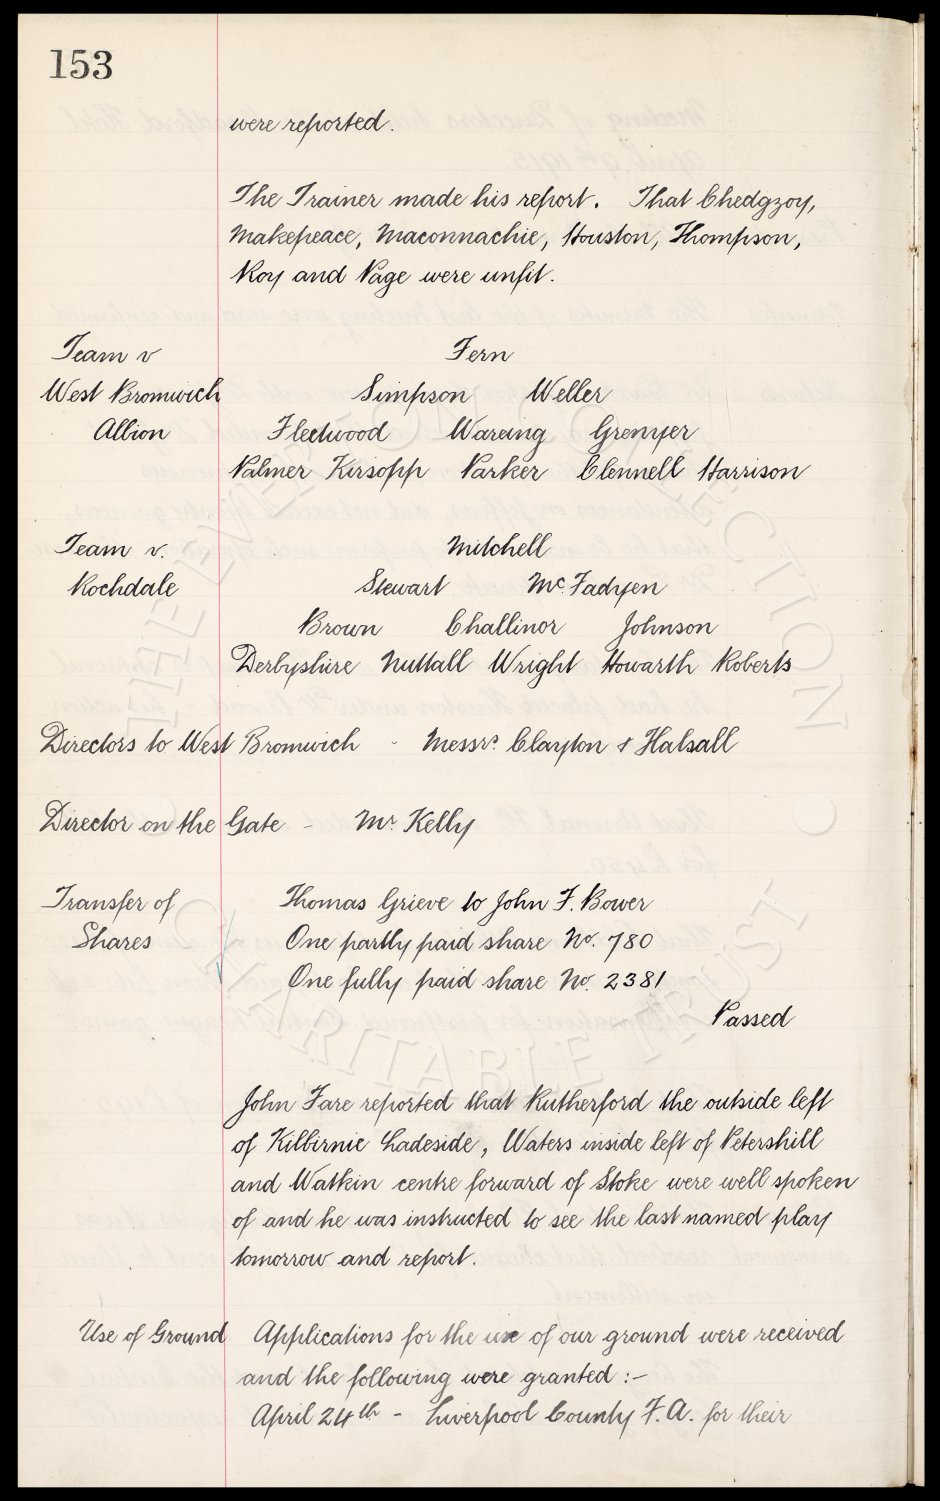 153
were reported.
The Trainer made his report. That Chedgzoy,
Makepeace, Maconnachie, Houston, Thompson,
Roy and Page were unfit.
Team v Fern
West Bromwich Simpson Weller
Albion Fleetwood Wareing Grenyer
Palmer Kirsopp Parker Clennell Harrison
Team v. Mitchell
Rochdale Stewart Mc. Fadyen
Brown Challinor Johnson
Derbyshire Nuttall Wright Howarth Roberts
Directors to West Bromwich - Messrs Clayton & Halsall
Director on the Gate - Mr Kelly
Transfer of Thomas Grieve to John F. Bower
Shares One partly paid share No. 780
One fully paid share No. 2381
Passed
John Fare reported that Rutherford the outside left
of Kilbirnie Ladeside, Waters inside left of Petershill
and Watkin centre forward of Stoke were well spoken
of and he was instructed to see the last named play
tomorrow and report.
Use of Ground Applications for the use of our ground were received
and the following were granted :-
April 24th - Liverpool County F.A. for their
THE EVERTON COLLECTION
CHARITABLE TRUST